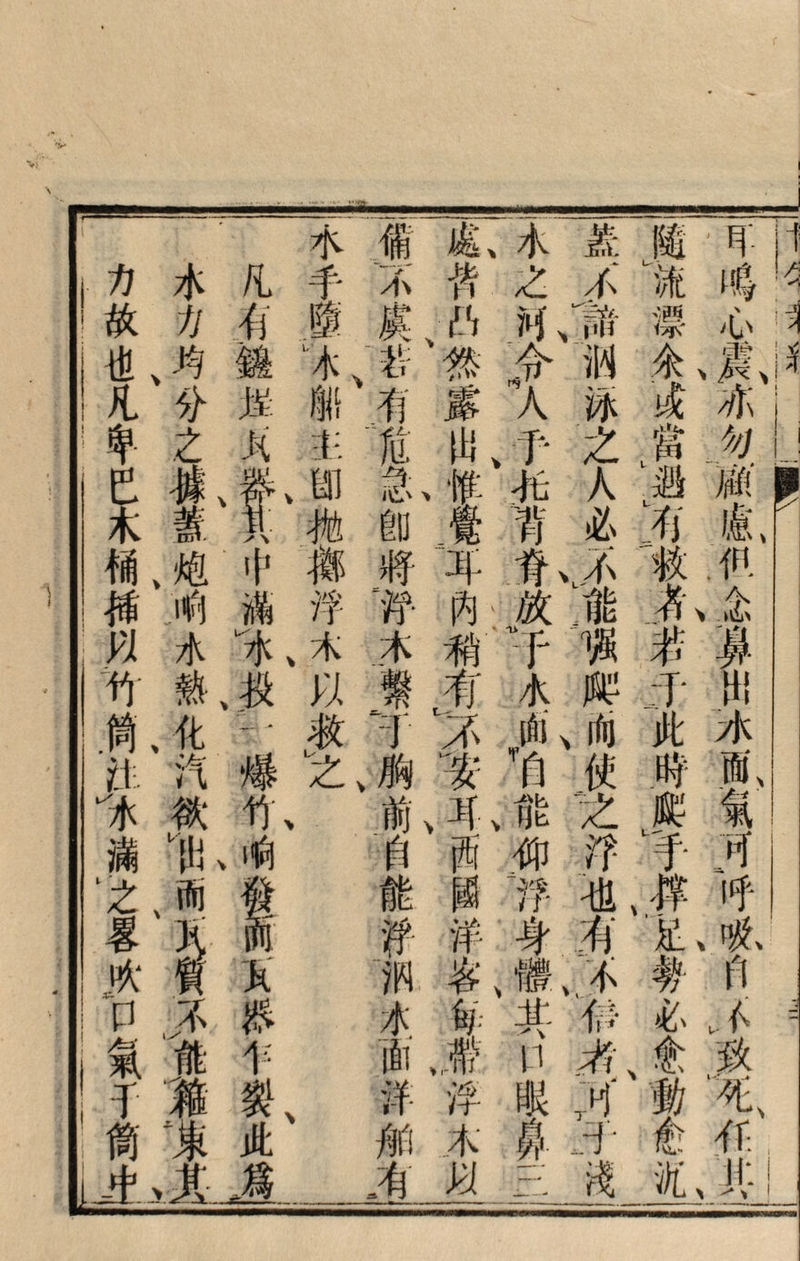 耳鳴心震、亦勿顧慮、但念鼻出水面、氣可呼吸、自不致死、任其
隨流漂氽、或當遇有救者、若于此時爬手撑足、勢必愈動愈沉、
蓋不諳泅泳之人必不能强爬而使之浮也、有不信者、可于淺
水之河、令人手托背脊、放于水面、自能仰浮身體、其口眼鼻三
處、皆凸然露出、惟覺耳内稍有不安耳、西國洋客、每帶浮木以
備不虞、若有危急、卽將浮木繫于胸前、自能浮泅水面、洋舶有
水手墮水、船主卽抛擲浮木以救之、
凡有鏹埕瓦器、其中滿水、投一爆竹、响發而瓦器乍裂、此爲
水力均分之據、蓋炮响水熱、化汽欲出、而瓦質不能籠束其
力故也、凡卑巴木桶、插以竹筒、注水滿之、畧吹口氣于筒中、